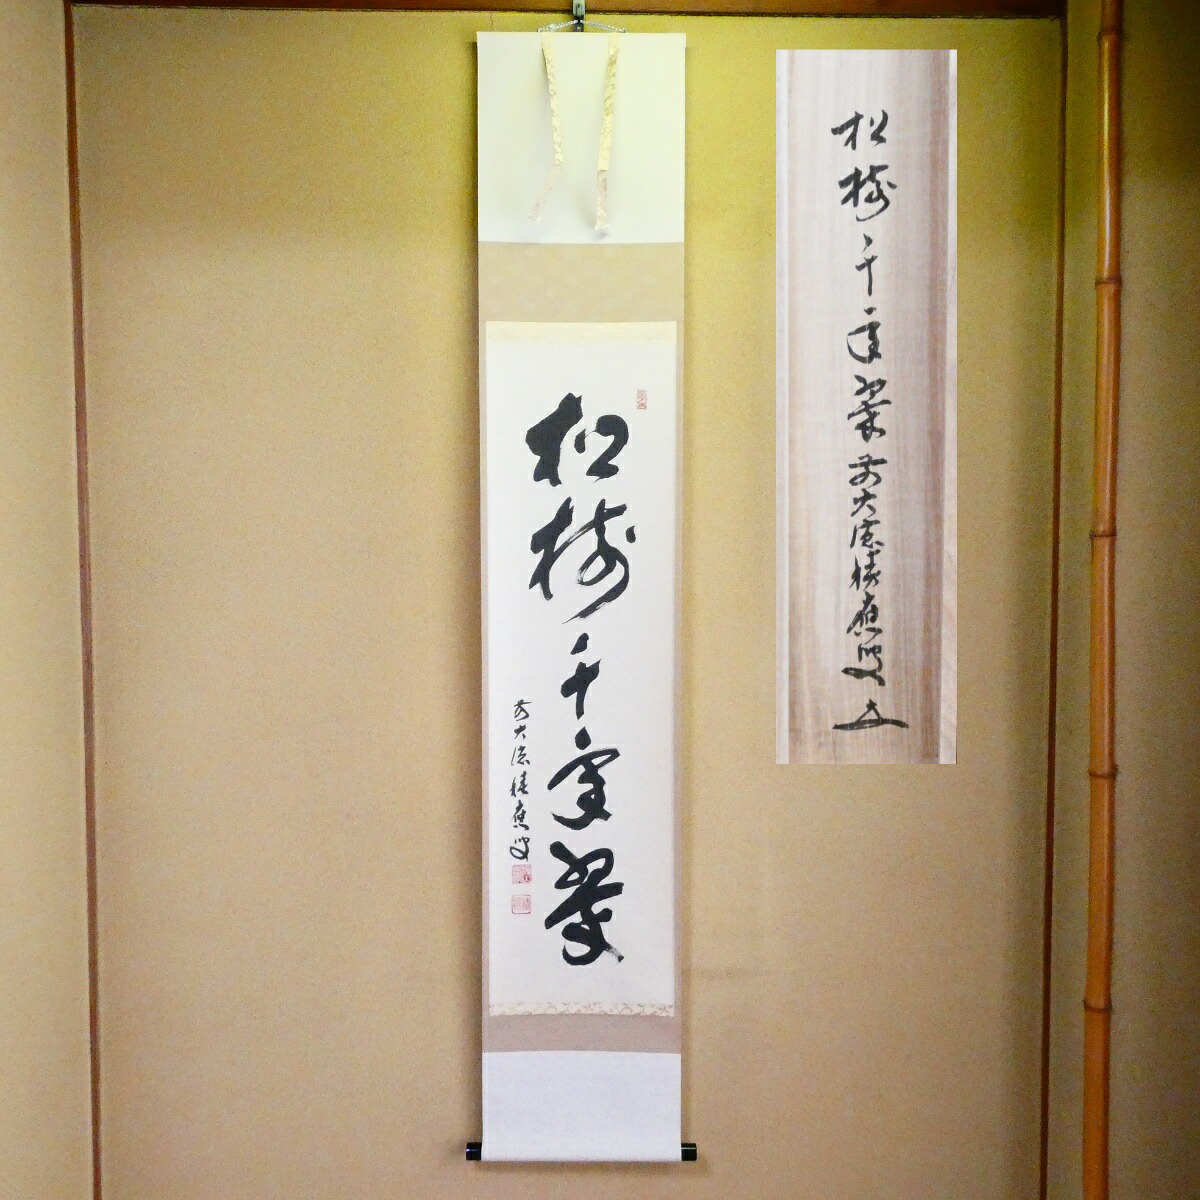 松樹千年翠
前大徳積應叟
松樹千年翠 前大徳積應叟